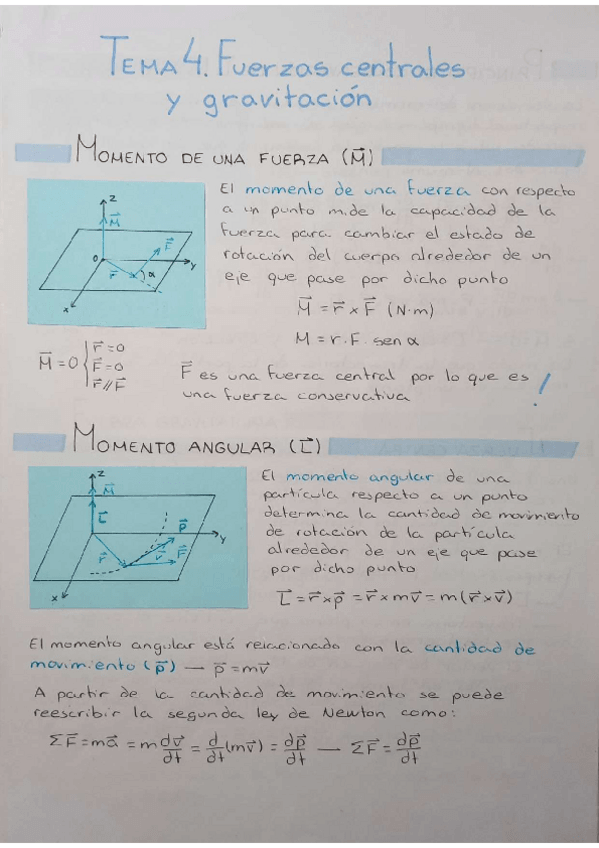 TEMA 4. Fuerzas centrales
y gravitación
MOMENTO DE UNA FUERZA (M⃗)
El momento de una fuerza con respecto
a un punto mide la capacidad de la
fuerza para cambiar el estado de
rotación del cuerpo alrededor de un
eje que pase por dicho punto
z
M⃗
F⃗
O
r⃗
α
y
x
M⃗ = r⃗ x F⃗ (N·m)
M = r · F · sen α
M⃗ = 0 { r⃗ = 0
F⃗ = 0
r⃗ // F⃗
F⃗ es una fuerza central por lo que es
una fuerza conservativa !
MOMENTO ANGULAR (L⃗)
z
M⃗
L⃗
p⃗
y
r⃗
v⃗
F⃗
x
El momento angular de una
partícula respecto a un punto
determina la cantidad de movimiento
de rotación de la partícula
alrededor de un eje que pase
por dicho punto
L⃗ = r⃗ x p⃗ = r⃗ x mv⃗ = m(r⃗ x v⃗)
El momento angular está relacionado con la cantidad de
movimiento (p⃗) — p⃗ = mv⃗
A partir de la cantidad de movimiento se puede
reescribir la segunda ley de Newton como:
ΣF⃗ = ma⃗ = m dv⃗/dt = d/dt (mv⃗) = dp⃗/dt — ΣF⃗ = dp⃗/dt